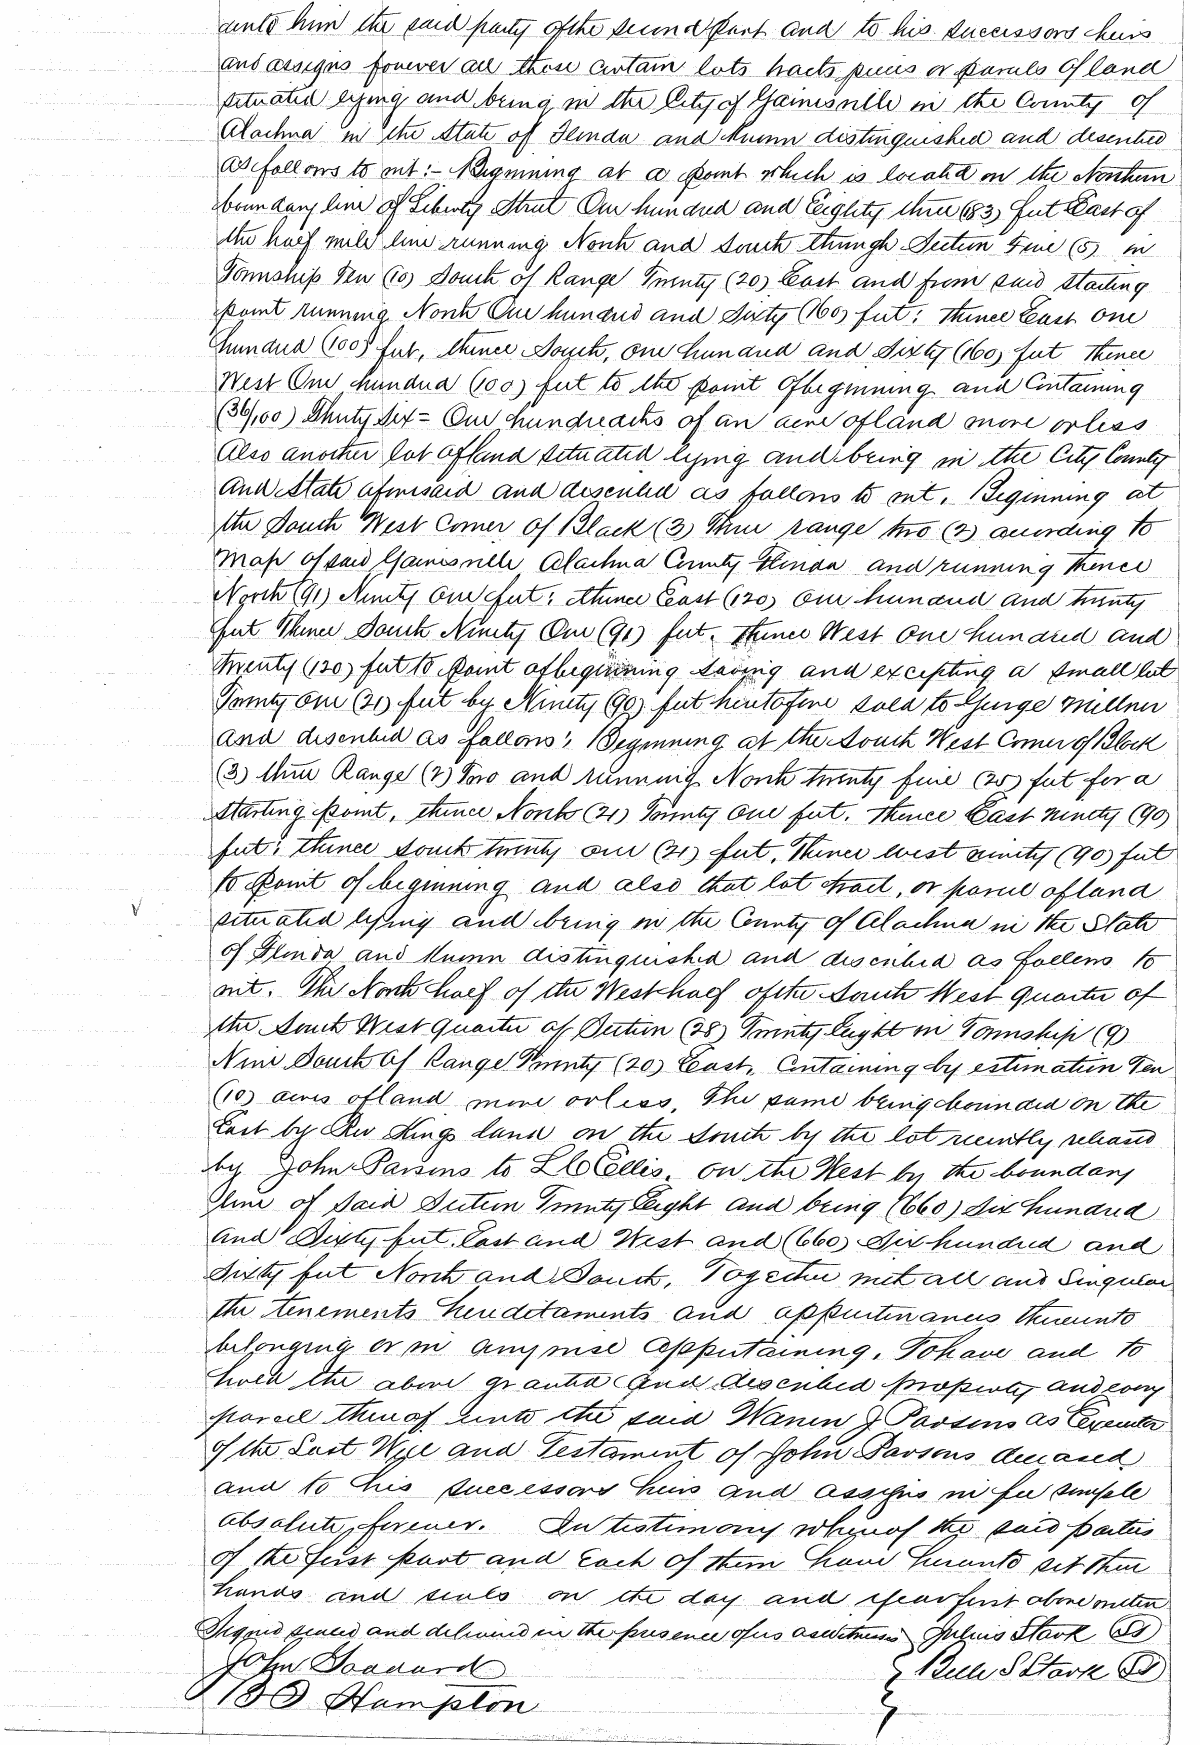 unto him the said party of the second part and to his successors heirs
and assigns forever all those certain lots tracts pieces or parcels of land
situated lying and being in the City of Gainesville in the County of
Alachua in the State of Florida and known distinguished and described
as follows to wit:- Beginning at a point which is located on the Northern
boundary line of Liberty Street One hundred and Eighty three (183) feet East of
the half mile line running North and South through Section Five (5) in
Township Ten (10) South of Range Twenty (20) East and from said starting
point running North One hundred and Sixty (160) feet; thence East one
hundred (100) feet, thence South, one hundred and Sixty (160) feet thence
West One hundred (100) feet to the point of beginning and Containing
(36/100) Thirty Six = One hundreaths of an acre of land more or less
Also another lot of land situated lying and being in the City County
and State aforesaid and described as follows to wit. Beginning at
the South West Corner of Block (3) Three range two (2) according to
Map of said Gainesville Alachua County Florida and running thence
North (91) Ninety One feet; thence East (120) One hundred and twenty
feet Thence South Ninety One (91) feet. thence West One hundred and
twenty (120) feet to point of beginning saving and excepting a small lot
Twenty one (21) feet by Ninety (90) feet heretofore sold to George Millner
and described as follows; Beginning at the South West Corner of Block
(3) three Range (2) Two and running North twenty five (25) feet for a
starting point, thence North (21) Twenty One feet. Thence East ninety (90)
feet; thence south twenty one (21) feet, Thence west ninety (90) feet
to point of beginning and also that lot tract, or parcel of land
situated lying and being in the County of Alachua in the State
of Florida and known distinguished and described as follows to
wit. The North half of the West half of the South West quarter of
the South West quarter of Section (28) Twenty Eight in Township (9)
Nine South of Range Twenty (20) East, Containing by estimation Ten
(10) acres of land more or less, The same being bounded on the
East by Rev Kings land on the South by the lot recently released
by John Parsons to L C Ellis, on the West by the boundary
line of said Section Twenty Eight and being (660) Six hundred
and Sixty feet East and West and (660) Six hundred and
Sixty feet North and South, Together with all and Singular
the tenements hereditaments and appurtenances thereunto
belonging or in anywise appertaining, To have and to
hold the above granted and described property and every
parcel thereof unto the said Warren J Parsons as Executor
of the Last Will and Testament of John Parsons deceased
and to his successors heirs and assigns in fee simple
absolute, forever. In testimony whereof the said parties
of the first part and Each of them have hereunto set their
hands and seals on the day and year first above written
Signed sealed and delivered in the presence of us as witness Julius Stark LS
John Goddard Belle S Stark LS
B D Hampton